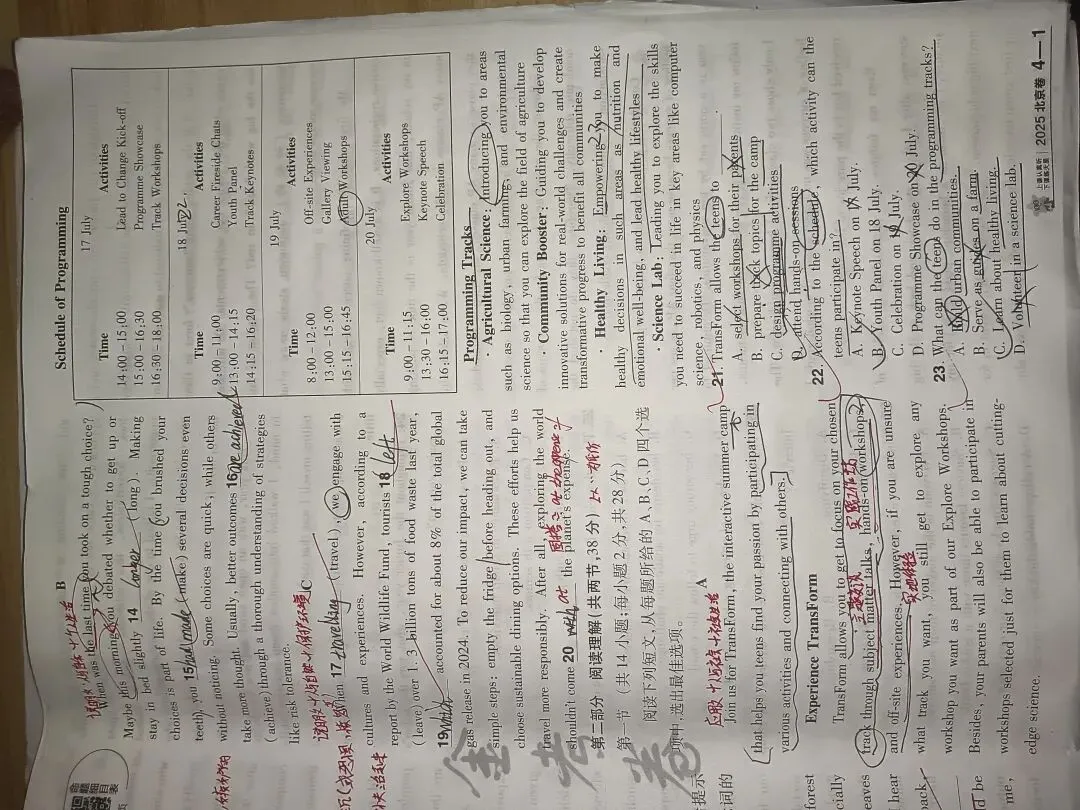 B
When was the last time you took on a tough choice?
Maybe this morning you debated whether to get up or
stay in bed slightly 14 longer (long). Making
choices is part of life. By the time you brushed your
teeth, you 15 had made (make) several decisions even
without noticing. Some choices are quick, while others
take more thought. Usually, better outcomes 16 are achieved
(achieve) through a thorough understanding of strategies
like risk tolerance.
C
When 17 travelling (travel), we engage with
cultures and experiences. However, according to a
report by the World Wildlife Fund, tourists 18 left
(leave) over 1.3 billion tons of food waste last year,
19 which accounted for about 8% of the total global
gas release in 2024. To reduce our impact, we can take
simple steps: empty the fridge before heading out, and
choose sustainable dining options. These efforts help us
travel more responsibly. After all, exploring the world
shouldn't come 20 at the planet's expense.
第二部分 阅读理解(共两节,38分)
第一节 (共14小题;每小题2分,共28分)
阅读下列短文,从每题所给的A、B、C、D四个选
项中,选出最佳选项。
A
Join us for TransForm, the interactive summer camp
that helps you teens find your passion by participating in
various activities and connecting with others.
Experience TransForm
TransForm allows you to get to focus on your chosen
track through subject matter talks, hands-on workshops,
and off-site experiences. However, if you are unsure
what track you want, you still get to explore any
workshop you want as part of our Explore Workshops.
Besides, your parents will also be able to participate in
workshops selected just for them to learn about cutting-
edge science.
Schedule of Programming
17 July
Time Activities
14:00-15:00 Lead to Change Kick-off
15:00-16:30 Programme Showcase
16:30-18:00 Track Workshops
18 July
Time Activities
9:00-11:00 Career Fireside Chats
13:00-14:15 Youth Panel
14:15-16:20 Track Keynotes
19 July
Time Activities
8:00-12:00 Off-site Experiences
13:00-15:00 Gallery Viewing
15:15-16:45 Adult Workshops
20 July
Time Activities
9:00-11:15 Explore Workshops
13:30-16:00 Keynote Speech
16:15-17:00 Celebration
Programming Tracks
· Agricultural Science: Introducing you to areas
such as biology, urban farming, and environmental
science so that you can explore the field of agriculture
· Community Booster: Guiding you to develop
innovative solutions for real-world challenges and create
transformative progress to benefit all communities
· Healthy Living: Empowering you to make
healthy decisions in such areas as nutrition and
emotional well-being, and lead healthy lifestyles
· Science Lab: Leading you to explore the skills
you need to succeed in life in key areas like computer
science, robotics, and physics
21. TransForm allows the teens to
A. select workshops for their parents
B. prepare track topics for the camp
C. design programme activities
D. attend hands-on sessions
22. According to the schedule, which activity can the
teens participate in?
A. Keynote Speech on July.
B. Youth Panel on 18 July.
C. Celebration on July.
D. Programme Showcase on 20 July.
23. What can the teens do in the programming tracks?
A. Build urban communities.
B. Serve as guides on a farm.
C. Learn about healthy living.
D. Volunteer in a science lab.
2025 北京卷 4—1
金考卷